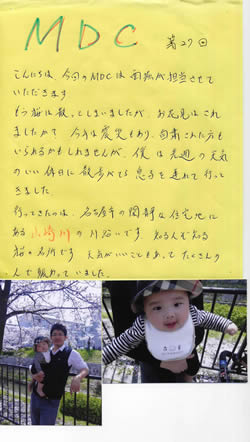 MDC 第27回
こんにちは、今回のMDCは
が担当させて
いただきます
もう桜は散ってしまいましたが、お花見はされ
ましたか? 今年は震災もあり、自粛された方も
いられるかもしれませんが、僕は先週の天気
のいい休日に散歩がてら息子を連れて行って
きました。
行ってきたのは、名古屋市の閑静な住宅地に
ある山崎川の川沿いです。知る人ぞ知る
桜の名所です 天気がいいこともあってたくさんの
人で賑わっていました。